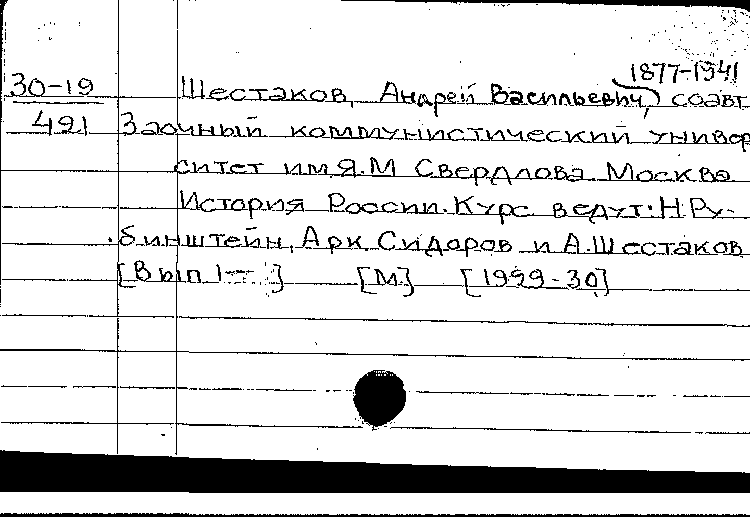 1877-1941
30-19 Шестаков, Андрей Васильевич, соавт
491 Заочный коммунистический универ
ситет им Я.М Свердлова. Москва
История России. Курс ведут: Н. Ру-
бинштейн, Арк. Сидоров и А. Шестаков
[Вып 1— ] [М.] [1929-30]